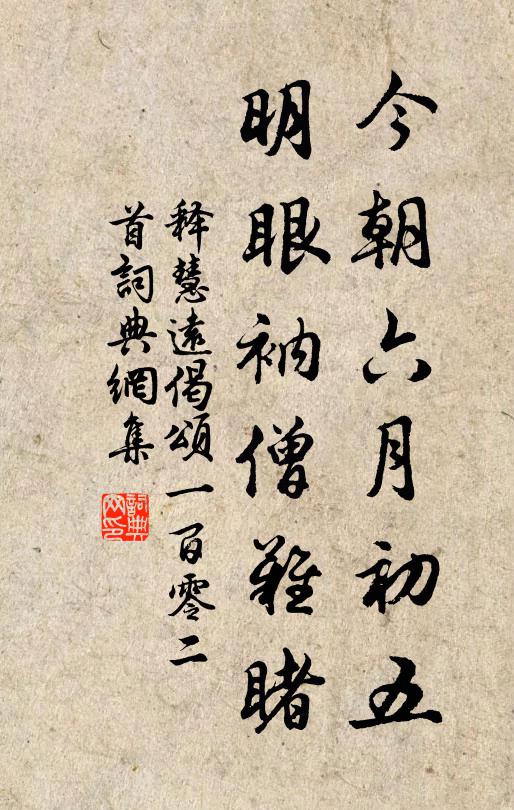 今朝六月初五
明眼衲僧難睹
释慧遠偈頌一百零二
首詞典網集
詞典网印